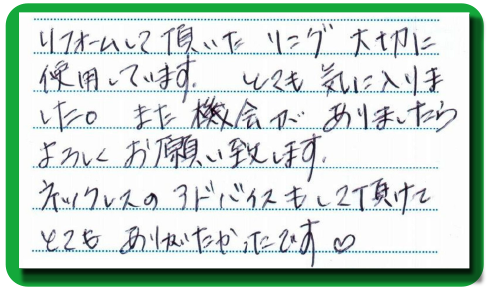 リフォームして頂いた リング 大切に
使用しています。 とても 気に入りま
した。 また 機会が ありましたら
よろしく お願い致します。
ネックレスの アドバイスもして頂けて
とても ありがたかったです♡